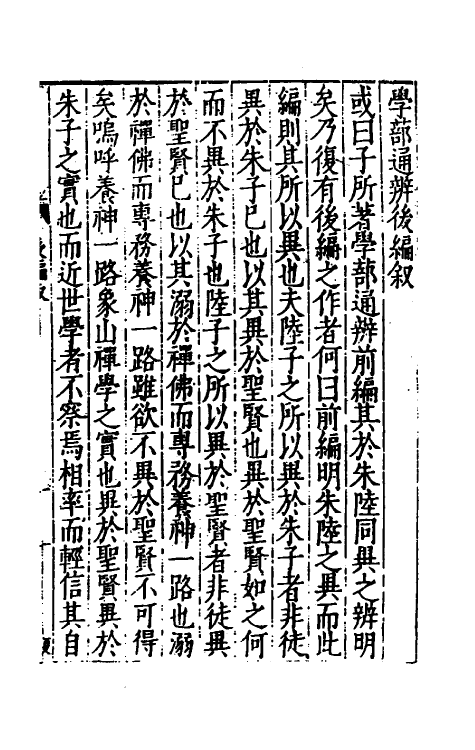 學蔀通辨後編叙
或曰子所著學蔀通辨前編其於朱陸同異之辨明
矣乃復有後編之作者何曰前編明朱陸之異而此
編則其所以異也夫陸子之所以異於朱子者非徒
異於朱子已也以其異於聖賢也異於聖賢如之何
而不異於朱子也陸子之所以異於聖賢者非徒異
於聖賢已也以其溺於禪佛而專務養神一路也溺
於禪佛而專務養神一路雖欲不異於聖賢不可得
矣嗚呼養神一路象山禪學之實也異於聖賢異於
朱子之實也而近世學者不察焉相率而輕信其自